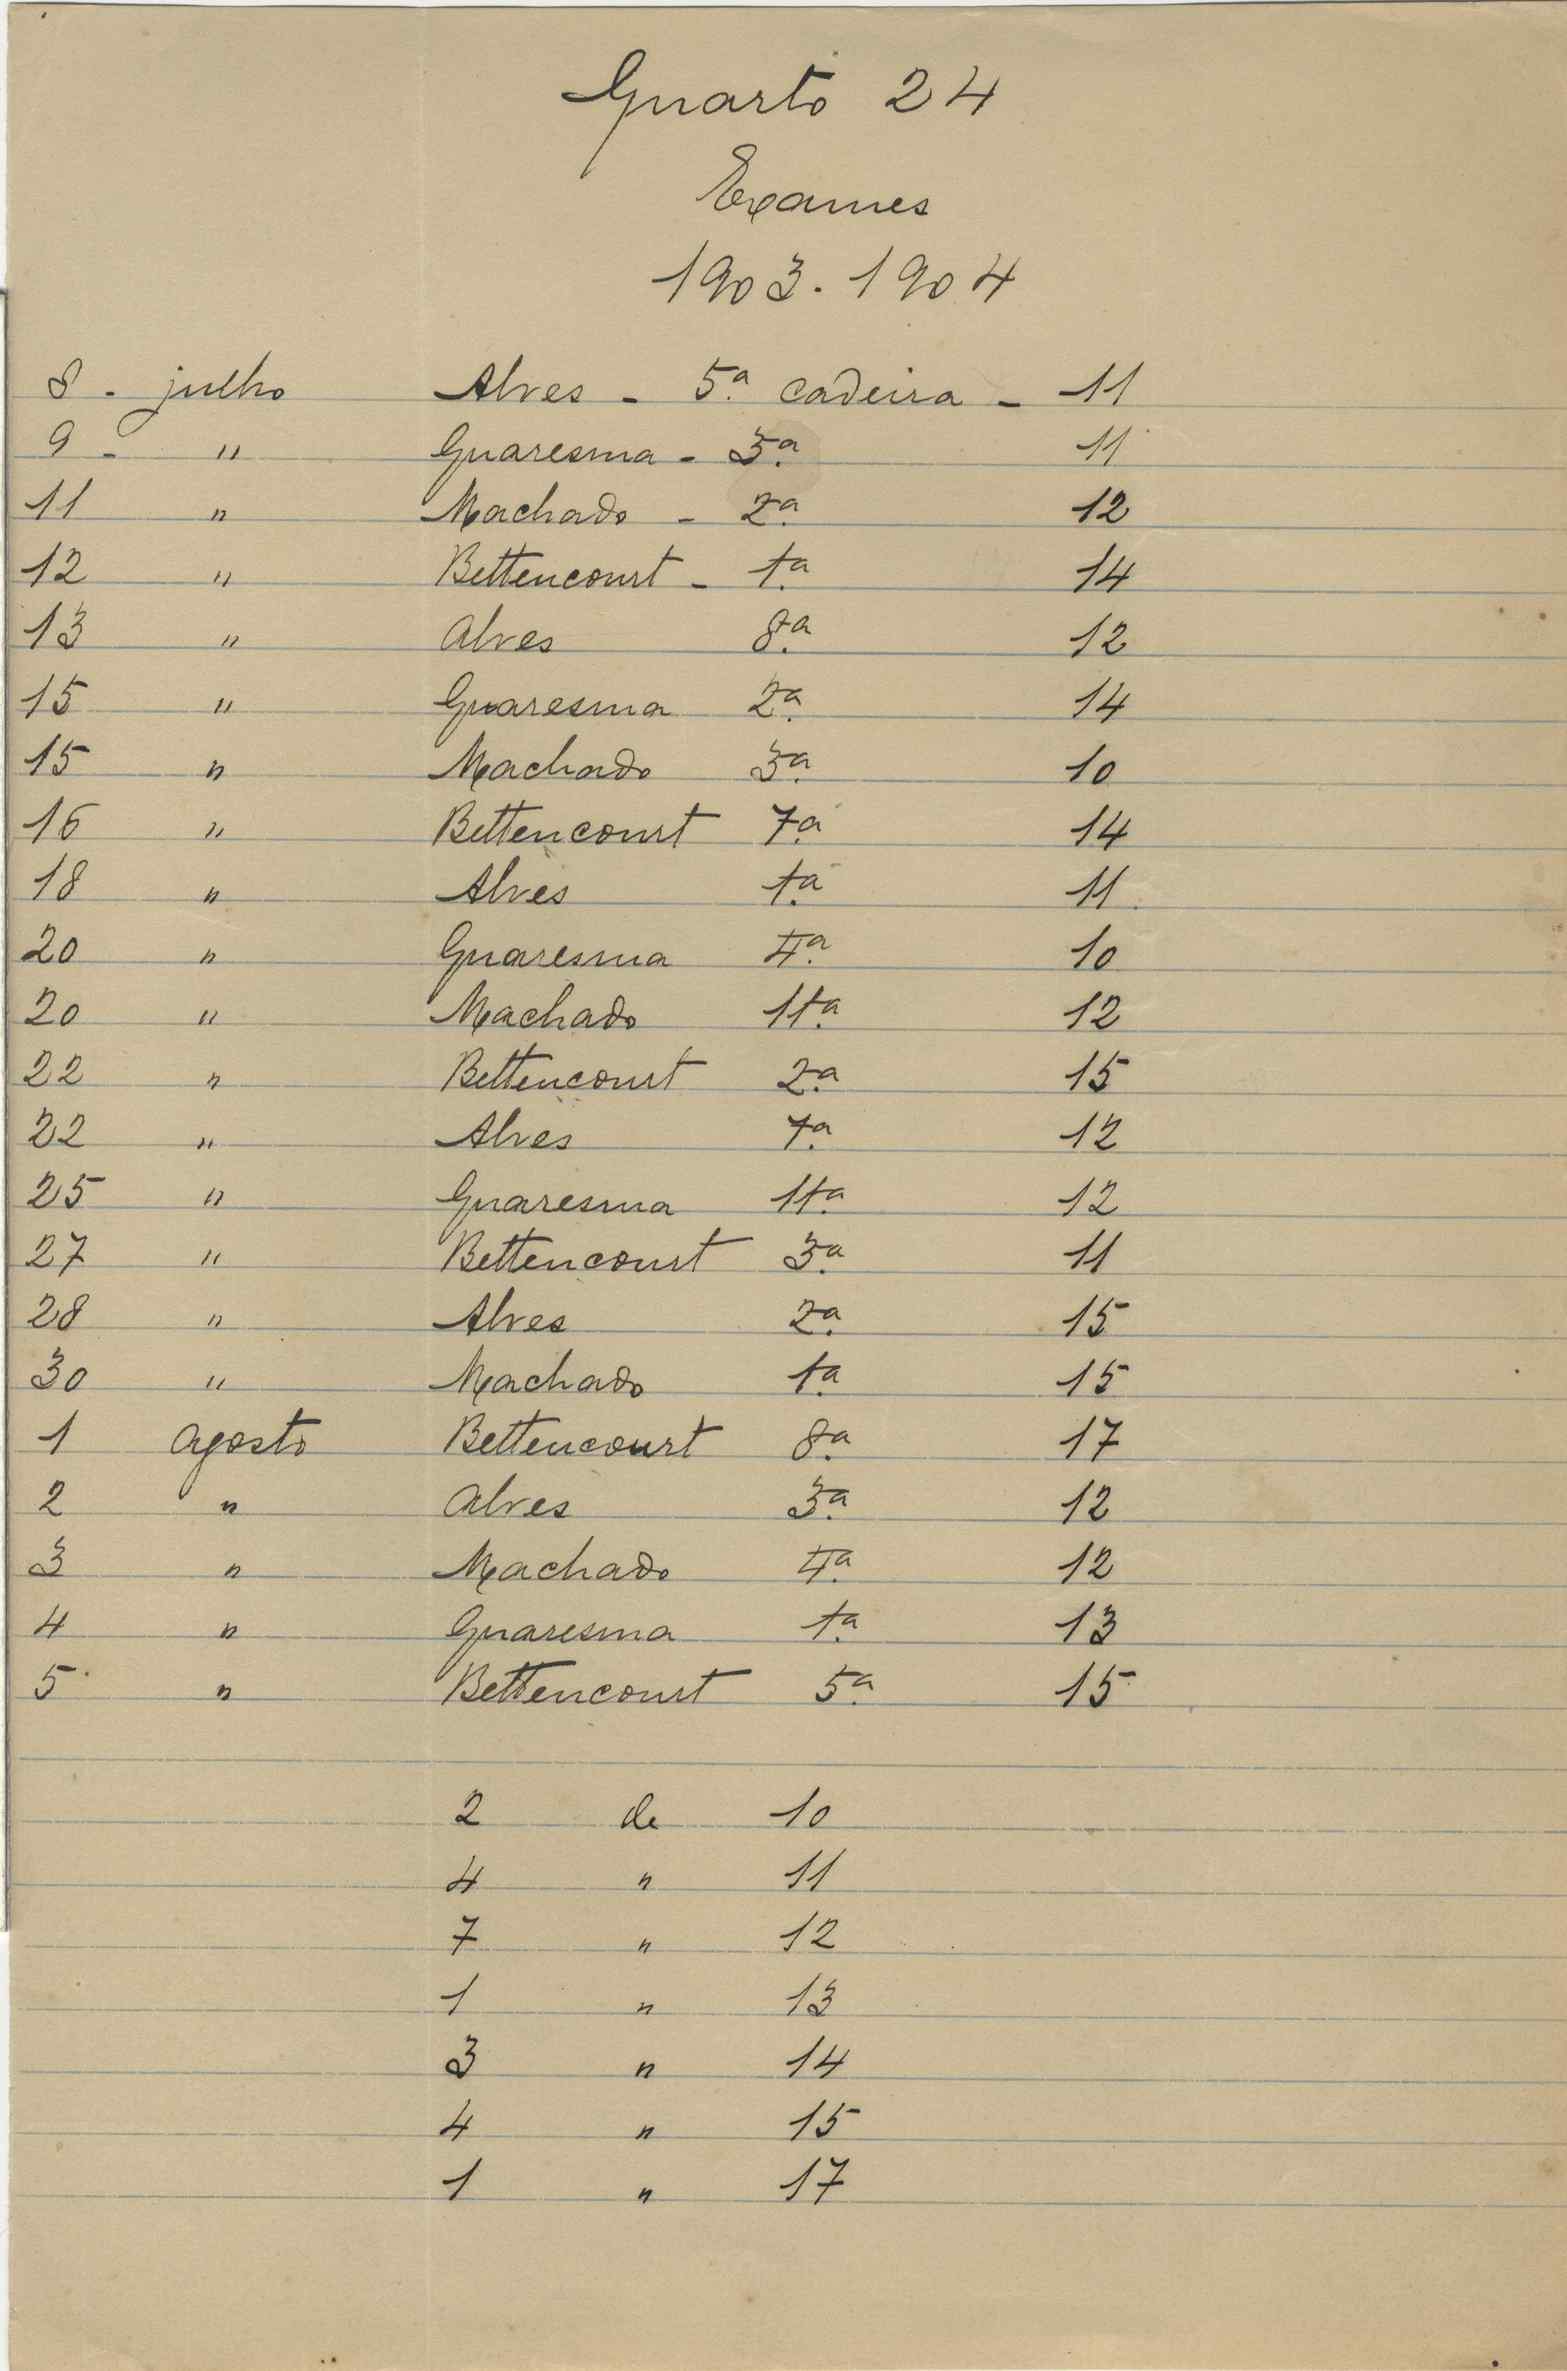 Quarto 24
Exames
1903. 1904
8 - julho Alves - 5.ª cadeira - 11
9 - " Quaresma - 3.ª 11
11 " Machado - 2.ª 12
12 " Bettencourt - 1.ª 14
13 " Alves 8.ª 12
15 " Quaresma 2.ª 14
15 " Machado 3.ª 10
16 " Bettencourt 7.ª 14
18 " Alves 1.ª 11
20 " Quaresma 4.ª 10
20 " Machado 11.ª 12
22 " Bettencourt 2.ª 15
22 " Alves 7.ª 12
25 " Quaresma 11.ª 12
27 " Bettencourt 3.ª 11
28 " Alves 2.ª 15
30 " Machado 1.ª 15
1 Agosto Bettencourt 8.ª 17
2 " Alves 3.ª 12
3 " Machado 4.ª 12
4 " Quaresma 1.ª 13
5 " Bettencourt 5.ª 15
2 de 10
4 " 11
7 " 12
1 " 13
3 " 14
4 " 15
1 " 17